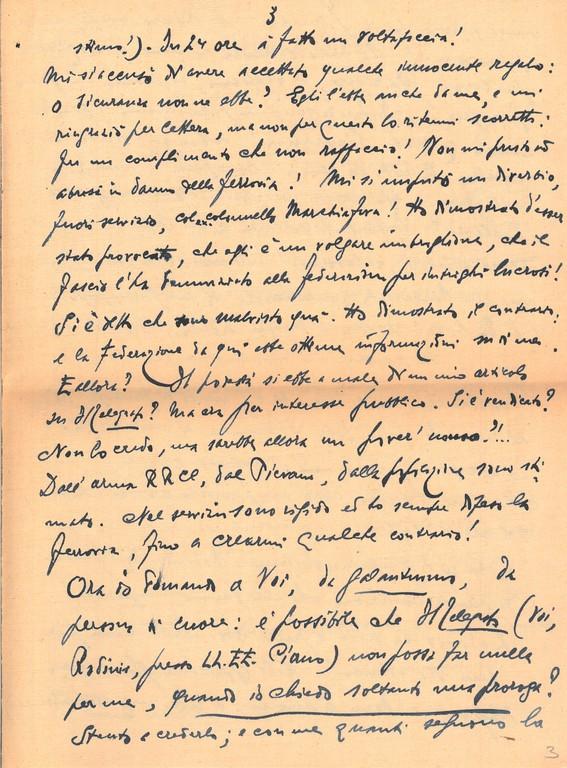 3
stimo!). In 24 ore à fatto un voltafaccia!
Mi si accusò d'avere accettato qualche innocente regalo:
o Sicuranza non ne ebbe? Egli l'ebbe anche da me, e mi
ringraziò per lettera, ma non per questo lo ritenni scorretto:
fu un complimento che non rinfaccio! Non mi prestò ad
abusi in danno della ferrovia! Mi si imputò un diverbio,
fuori servizio, col ex colonnello Marchiafava! Ho dimostrato d'esser
stato provocato, che egli è un volgare imbroglione, che il
Fascio l'ha denunziato alla federazione per intrighi lucrosi!
Si è detto che ero malvisto quà. Ho dimostrato il contrario:
e la Federazione da quì ebbe ottime informazioni su di me.
E allora? Il podestà si ebbe a male di un mio articolo
su Il Telegrafo? Ma era per interesse pubblico. Si è vendicato?
Non lo credo, ma sarebbe allora un pover' uomo!?!...
Dall' arma RRCC, dal Pievano, dalla popolazione sono sti-
mato. Nel servizio sono rigido ed ho sempre difeso la
ferrovia, fino a crearmi qualche contrario!
Ora io domando a Voi, da galantuomo, da
persona di cuore: è possibile che Il Telegrafo (Voi,
presso LL.EE. Ciano) non possa far nulla
per me, quando io chiedo soltanto una proroga?
Stento a crederlo; e con me quanti seguono la
3